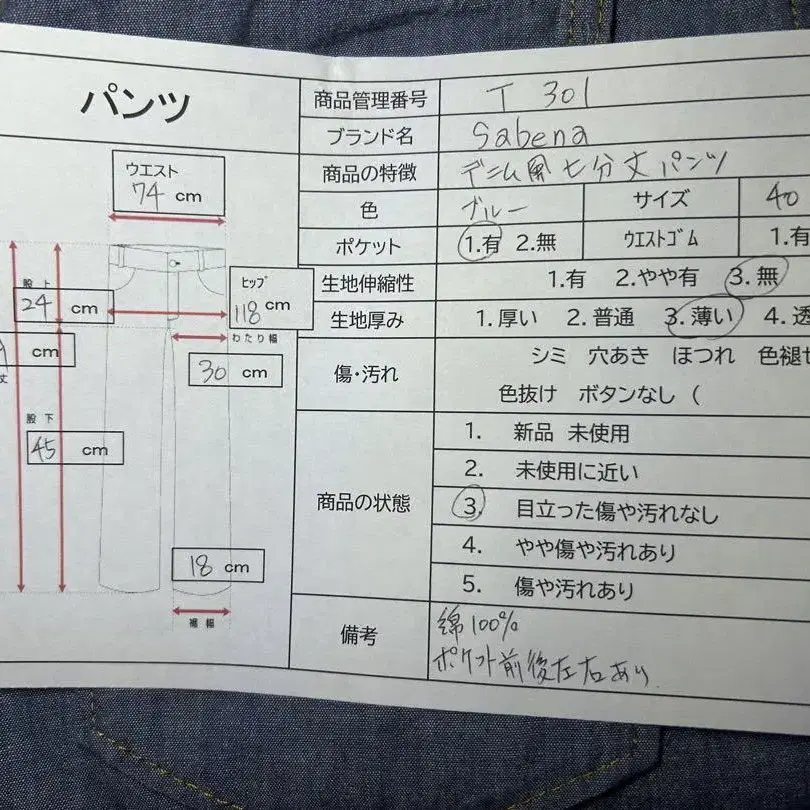 パンツ
商品管理番号 T 301
ブランド名 Sabena
商品の特徴 デニム風七分丈パンツ
色 ブルー サイズ 40
ポケット 1.有 2.無 ウエストゴム 1.有
生地伸縮性 1.有 2.やや有 3.無
生地厚み 1.厚い 2.普通 3.薄い 4.透
傷・汚れ シミ 穴あき ほつれ 色褪せ
色抜け ボタンなし (
商品の状態
1. 新品 未使用
2. 未使用に近い
3. 目立った傷や汚れなし
4. やや傷や汚れあり
5. 傷や汚れあり
備考
綿100%
ポケット前後左右あり
ウエスト
74 cm
股上
24 cm
ヒップ
118 cm
わたり幅
30 cm
cm
丈
股下
45 cm
18 cm
裾幅